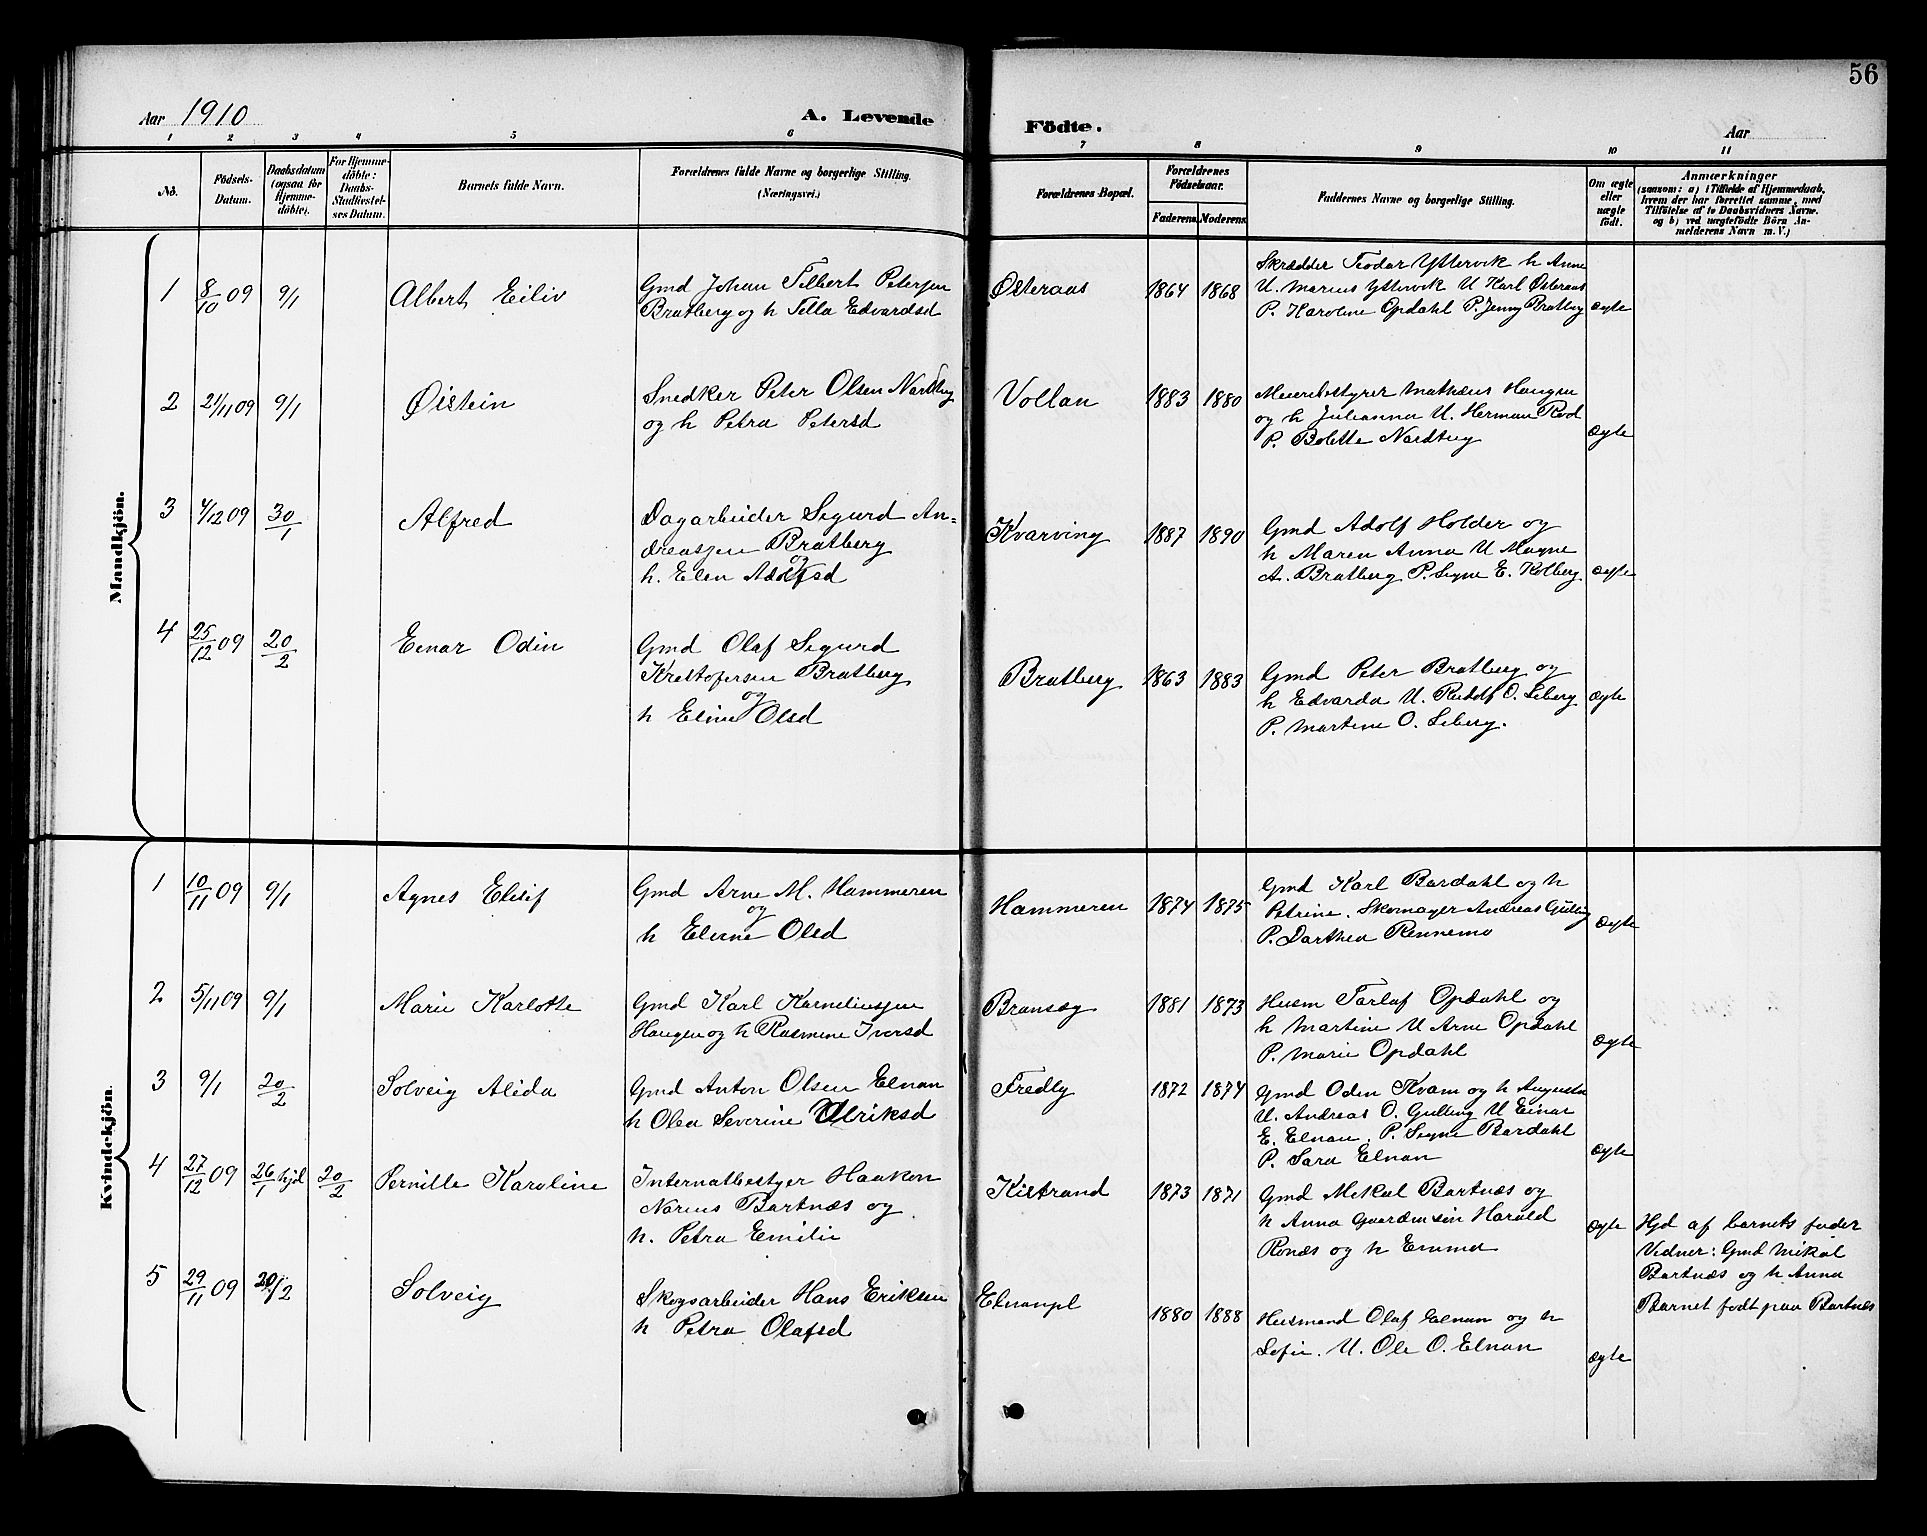 56
Aar 1910 A. Levende Födte. Aar
1 2 3 4 5 6 7 8 9 10 11
No. Födsels-Datum. Daabsdatum (ogsaa för Hjemme-döbte). For Hjemme-döbte: Daabs-Stadfæstel-ses Datum. Barnets fulde Navn. Forældrenes fulde Navne og borgerlige Stilling. (Næringsvei.) Forældrenes Bopæl. Forældrenes Födselsaar. Faderens. Moderens. Faddernes Navne og borgerlige Stilling. Om ægte eller uægte födt. Anmærkninger (saasom: a) i Tilfælde af Hjemmedaab, hvem der har forrettet samme, med Tilföielse af to Daabsvidners Navne. og b) ved uægtefödte Börn An-melderens Navn m. V.)
Mandkjön.
1 8/10 09 9/1 Albert Eiliv
Gmd Johan Tilbert Petersen
Bratberg og h Tella Edvardsd
Østeraas 1864 1868
Skrædder Teodor Yttervik h Anne
U. Marius Yttervik U Karl Østeraas
P. Karoline Opdahl P. Jenny Bratberg ægte
2 21/11 09 9/1 Øistein
Snedker Peter Olsen Nordberg
og h Petra Petersd
Vollan 1883 1880
Meieribestyrer Mathæus Haugen
og h Julianna U. Herman Rod
P. Bolette Nordberg ægte
3 4/12 09 30/1 Alfred
Dagarbeider Sigurd An=
dreassen Bratberg
og
h. Elen Adolfsd
Kvarving 1887 1890
Gmd Adolf Holder og
h Maren Anna U Magne
A. Bratberg P. Signe E. Kolberg ægte
4 25/12 09 20/2 Einar Odin
Gmd Olaf Sigurd
Kristofersen Bratberg
og
h Eline Olsd
Bratberg 1863 1883
Gmd Peter Bratberg og
h Edvarda U. Rudolf O. Leberg
P. Martine O. Leberg. ægte
Kvindekjön.
1 10/11 09 9/1 Agnes Elisif
Gmd Arne M. Hammeren
og
h Elerne Olsd
Hammeren 1874 1875
Gmd Karl Bardahl og h
Petrine. Skomager Andreas Gulling
P. Darthea Rennemo ægte
2 5/11 09 9/1 Marie Karlotte
Gmd Karl Korneliussen
Haugen og h Rasmine Iversd
Bransæg 1881 1873
Husm Torlaf Opdahl og
h Martine U Arne Opdahl
P. Marie Opdahl ægte
3 9/1 20/2 Solveig Alida
Gmd Anton Olsen Elnan
h Olea Severine Ulriksd
Fredly 1872 1874
Gmd Oden Kvam og h Augusta
U. Andreas O. Gulling U Einar
E. Elnan. P. Signe Bardahl
P. Sara Elnan ægte
4 27/12 09 26/1 hjd 20/2 Pernille Karoline
Internatbestyer Haakon
Narius Bartnæs og
h. Petra Emilie
Kistrand 1873 1871
Gmd Mikal Bartnæs og
h Anna Gaardmsøn Harald
Ronæs og h Emma ægte
Hjd af barnets fader
Vidner: Gmd Mikal
Bartnæs og h Anna
Barnet født paa Bartnæs
5 29/11 09 20/2 Solveig
Skogsarbeider Hans Eriksen
h Petra Olafsd
Elnanpl 1880 1888
Husmand Olaf Elnan og h
Sofie. U. Ole O. Elnan ægte